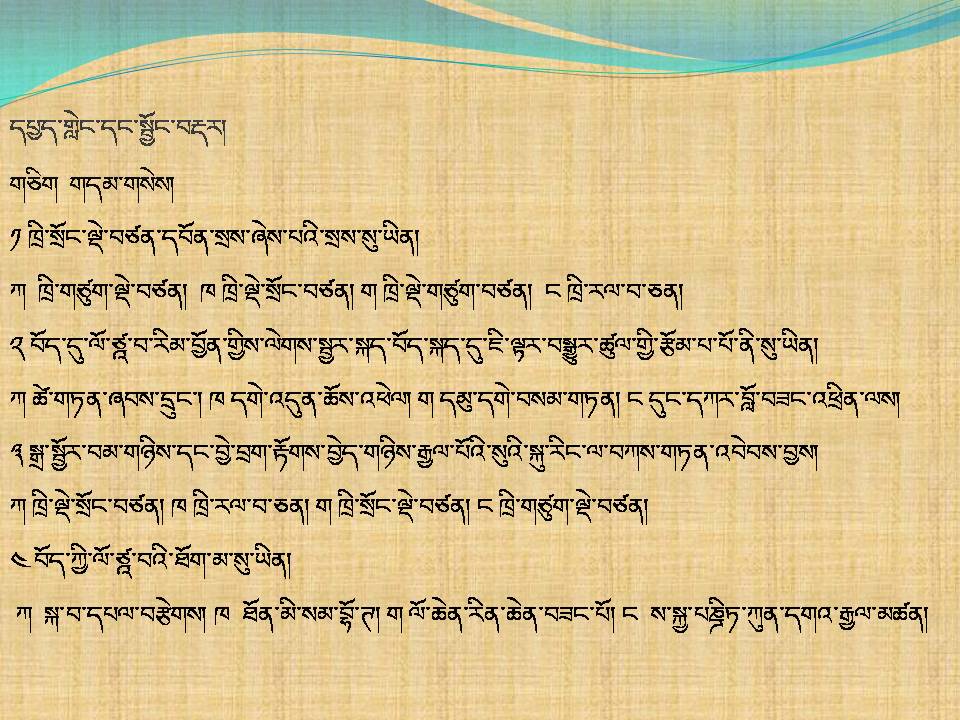 དཔྱད་གླེང་དང་སྦྱོང་བརྡར།
གཅིག  གདམ་གསེས།
༡ ཁྲི་སྲོང་ལྡེ་བཙན་དབོན་སྲས་ཞེས་པའི་སྲས་སུ་ཡིན།
ཀ  ཁྲི་གཙུག་ལྡེ་བཙན།  ཁ ཁྲི་ལྡེ་སྲོང་བཙན། ག ཁྲི་ལྡེ་གཙུག་བཙན།  ང ཁྲི་རལ་བ་ཅན།
༢ བོད་དུ་ལོ་ཙཱ་བ་རིམ་བྱོན་གྱིས་ལེགས་སྦྱར་སྐད་བོད་སྐད་དུ་ཇི་ལྟར་བསྒྱུར་ཚུལ་གྱི་རྩོམ་པ་པོ་ནི་སུ་ཡིན།
ཀ ཚེ་གཏན་ཞབས་དྲུང་། ཁ དགེ་འདུན་ཆོས་འཕེལ། ག དམུ་དགེ་བསམ་གཏན། ང དུང་དཀར་བློ་བཟང་འཕྲིན་ལས།
༣ སྒྲ་སྦྱོར་བམ་གཉིས་དང་བྱེ་བྲག་རྟོགས་བྱེད་གཉིས་རྒྱལ་པོའི་སུའི་སྐུ་རིང་ལ་བཀས་གཏན་འབེབས་བྱས།
ཀ ཁྲི་ལྡེ་སྲོང་བཙན། ཁ ཁྲི་རལ་བ་ཅན། ག ཁྲི་སྲོང་ལྡེ་བཙན། ང ཁྲི་གཙུག་ལྡེ་བཙན།
༤ བོད་ཀྱི་ལོ་ཙཱ་བའི་ཐོག་མ་སུ་ཡིན།
ཀ  སྐ་བ་དཔལ་བརྩེགས། ཁ  ཐོན་མི་སམ་བྷོ་ཊ། ག ལོ་ཆེན་རིན་ཆེན་བཟང་པོ། ང  ས་སྐྱ་པཎྜིཏ་ཀུན་དགའ་རྒྱལ་མཚན།